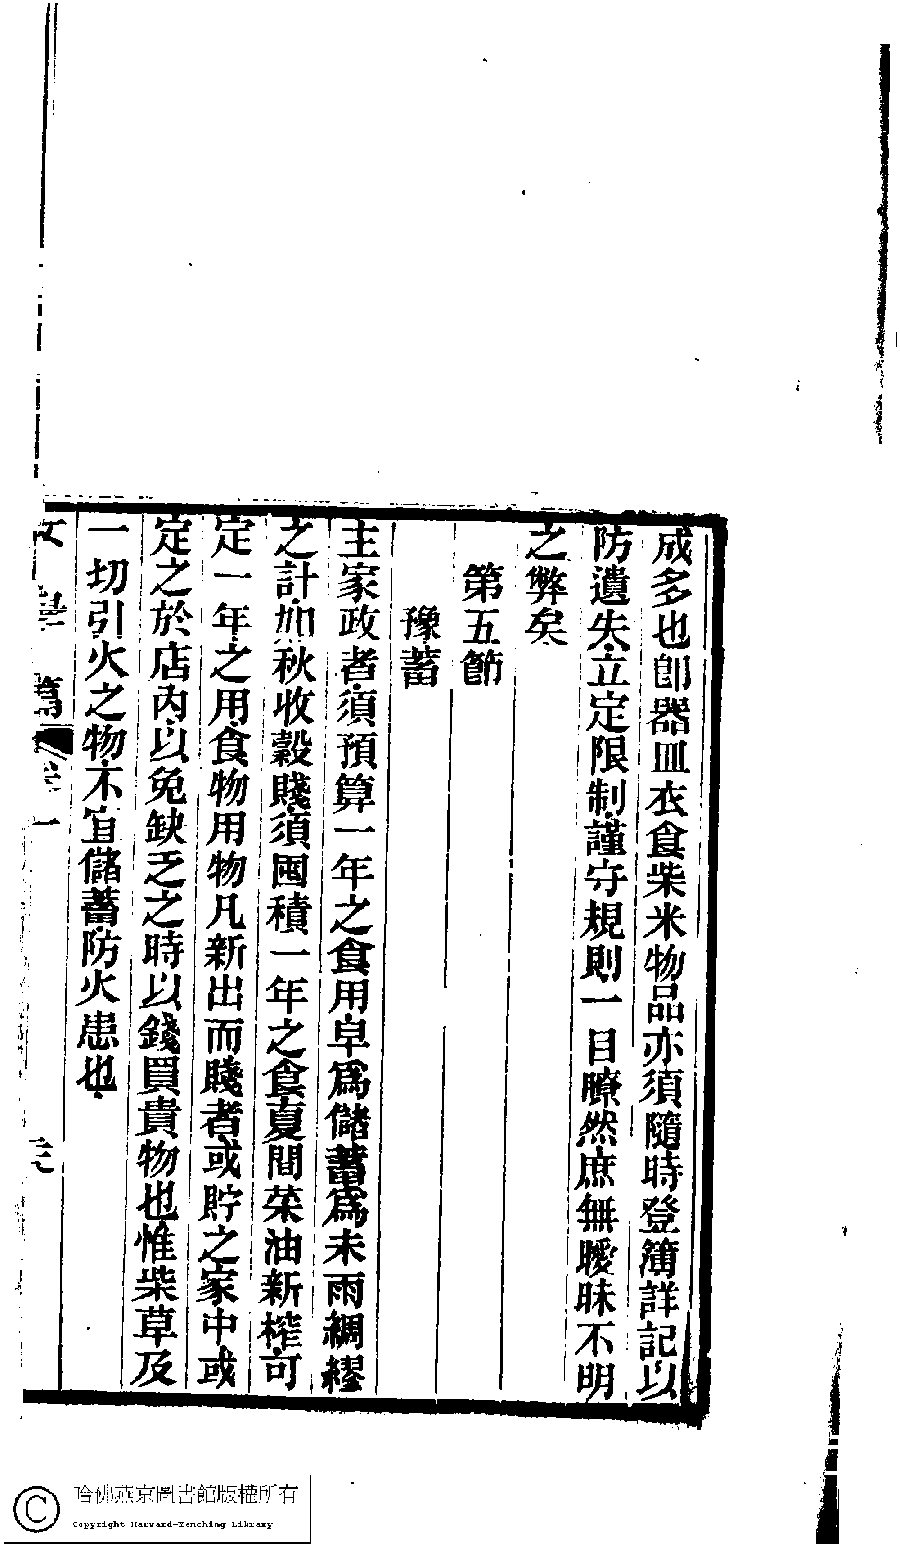 成多也卽器皿衣食柴米物品亦須隨時登簿詳記以
防遺失立定限制謹守規則一目瞭然庶無曖昧不明
之弊矣
第五節
豫蓄
主家政者須預算一年之食用皁爲儲蓄爲未雨綢繆
之計如秋收穀賤須囤積一年之食夏間菜油新榨可
定一年之用食物用物凡新出而賤者或貯之家中或
定之於店內以免缺乏之時以錢買貴物也惟柴草及
一切引火之物不宜儲蓄防火患也
女學篇
卷一
哈佛燕京圖書館版權所有
Copyright Harvard-Yenching Library